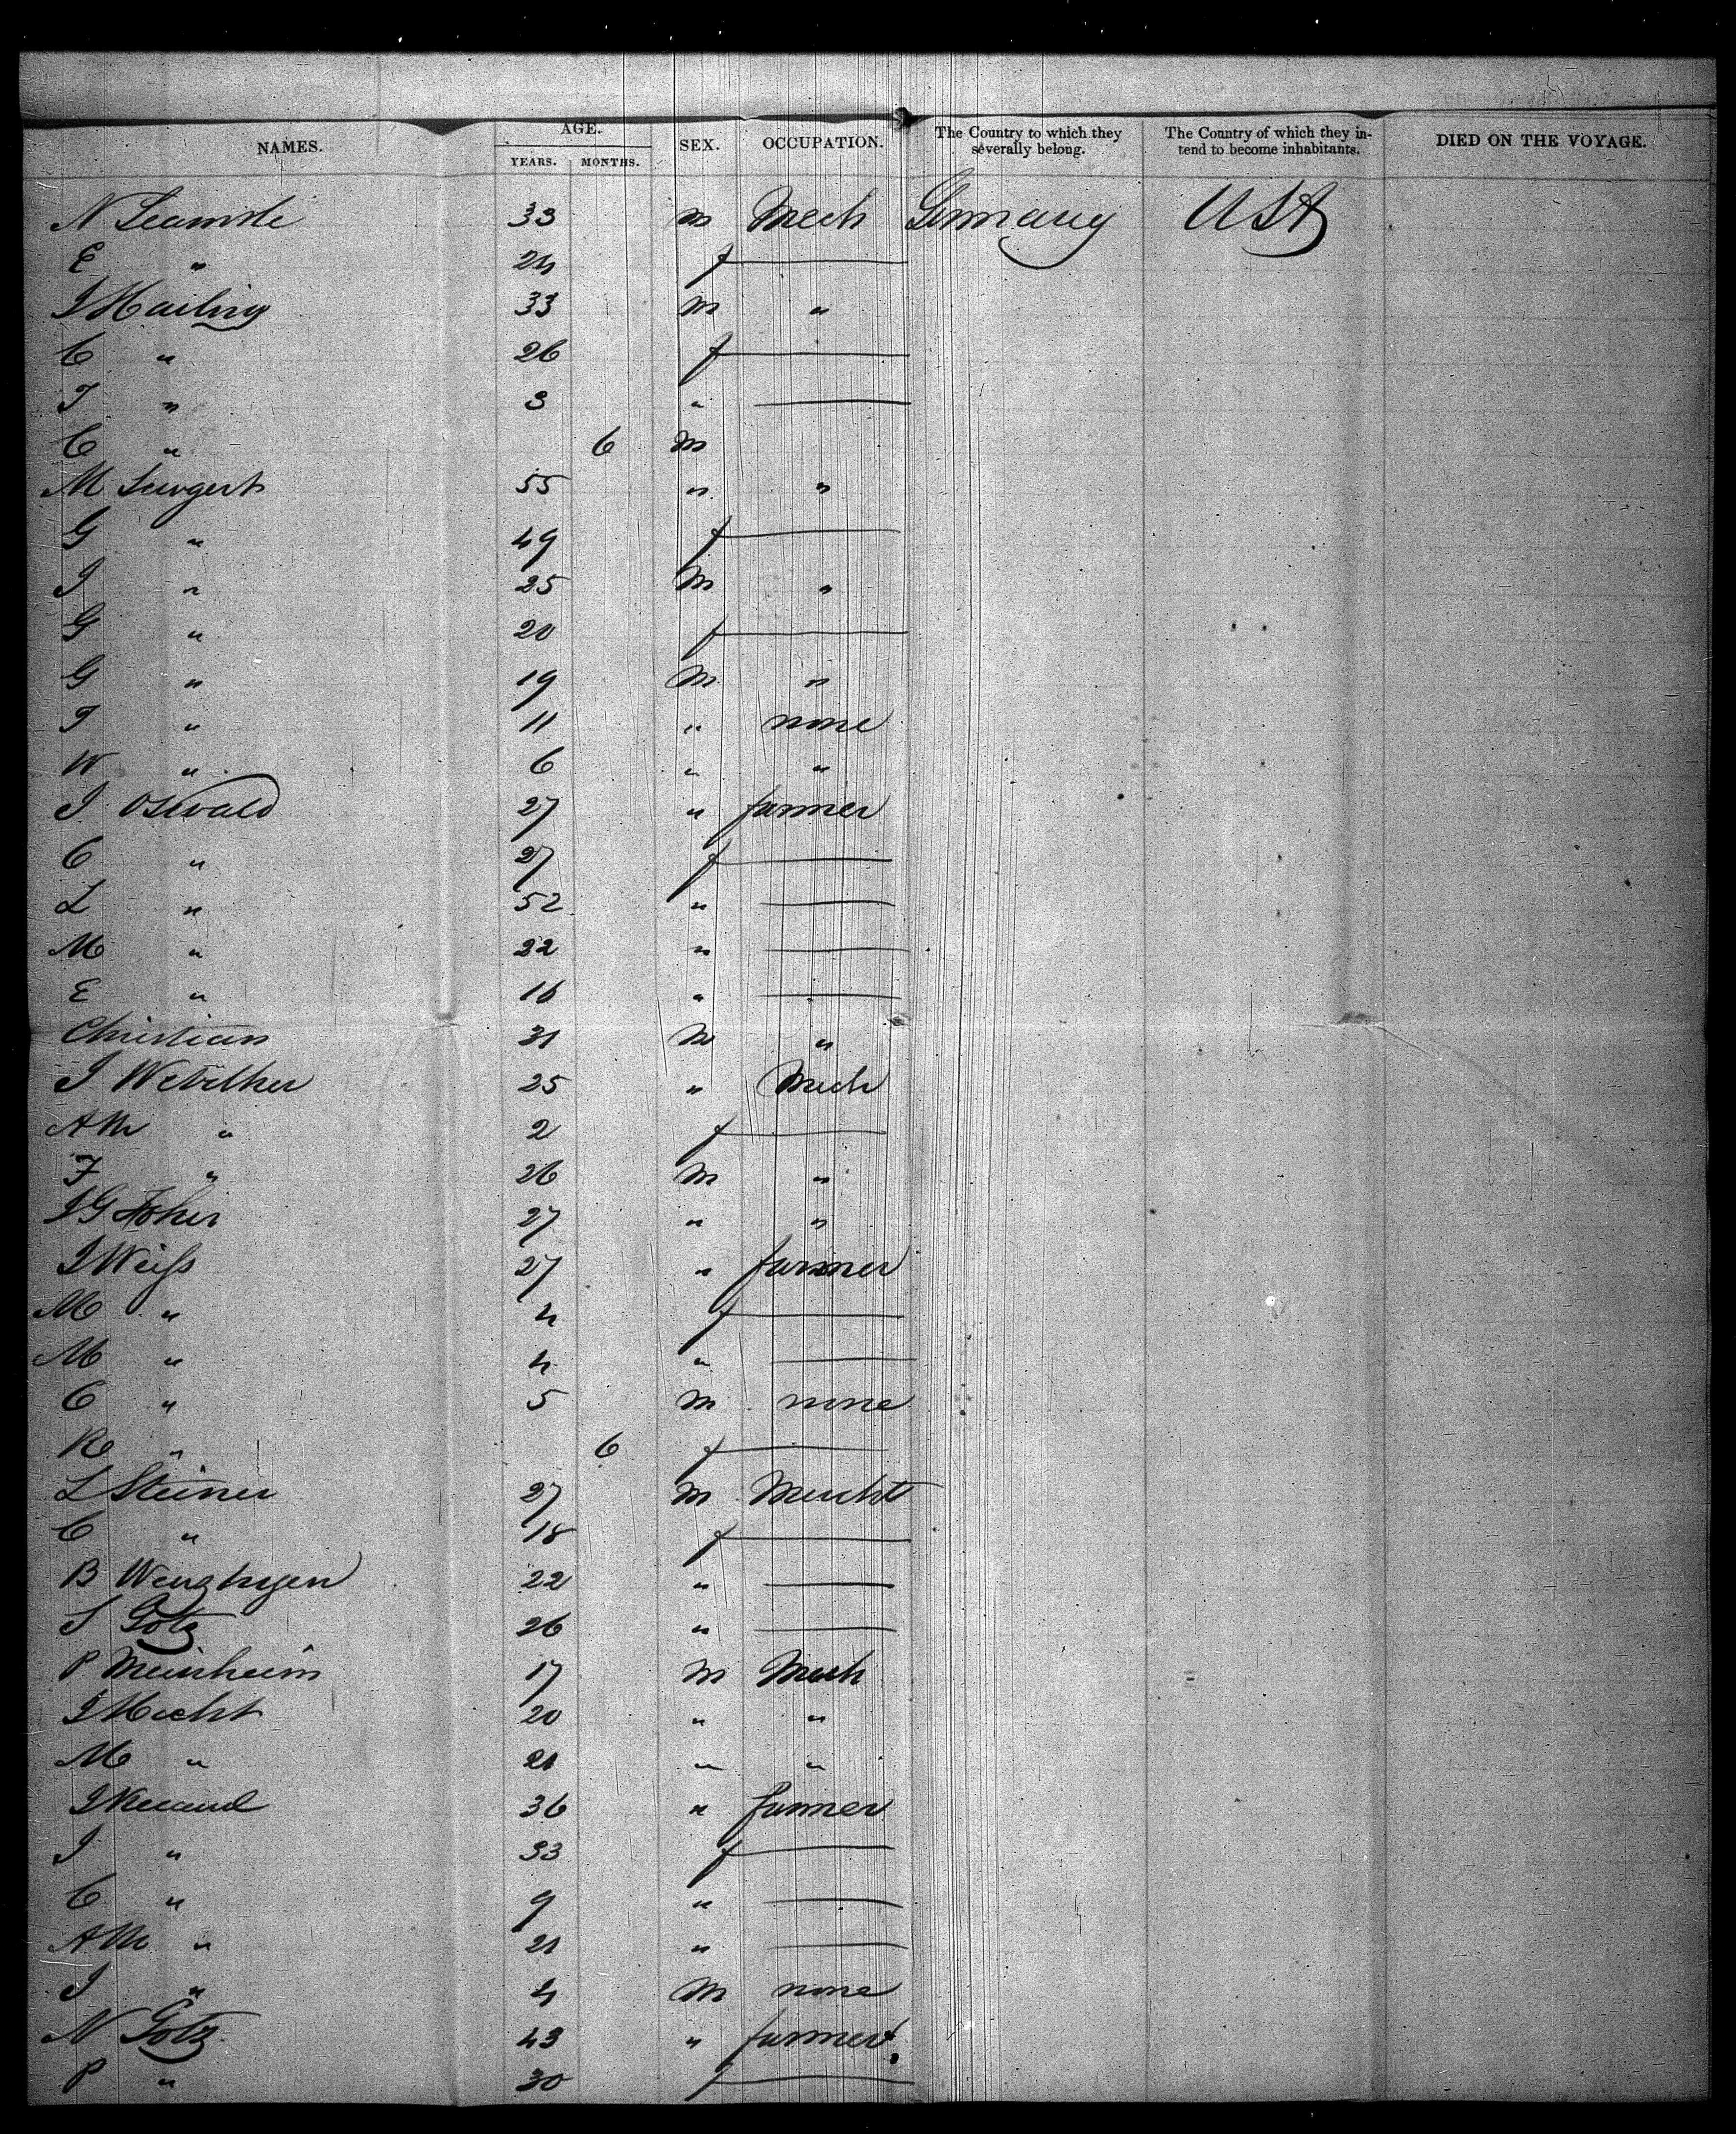 NAMES. AGE. YEARS. MONTHS. SEX. OCCUPATION. The Country to which they severally belong. The Country of which they intend to become inhabitants. DIED ON THE VOYAGE.
N 33 m Mech Germany USA
E " 24 f —
J Hailing 33 m "
C " 26 f —
T " 3 " —
C " 6 m
M 55 " "
G " 49 f —
J " 25 m "
G " 20 f —
G " 19 m "
T " 11 " none
W " 6 " "
J Oswald 27 " farmer
C " 27 f —
L " 52 " —
M " 22 " —
E " 16 " —
Christian 31 m "
J 25 " Mech
AM " 2 f —
F " 26 m "
JG 27 " "
J Weiss 27 " farmer
M " 4 f —
M " 4 " —
C " 5 m none
R " 6 f —
L Steiner 27 m Mercht
C " 18 f —
B 22 " —
S Götz 26 " —
P Meinheim 17 m Mech
J Hecht 20 " "
M " 21 " "
J 36 " farmer
J " 33 f —
C " 9 " —
AM " 21 " —
J " 4 m none
N Götz 43 " farmer
P " 30 f —